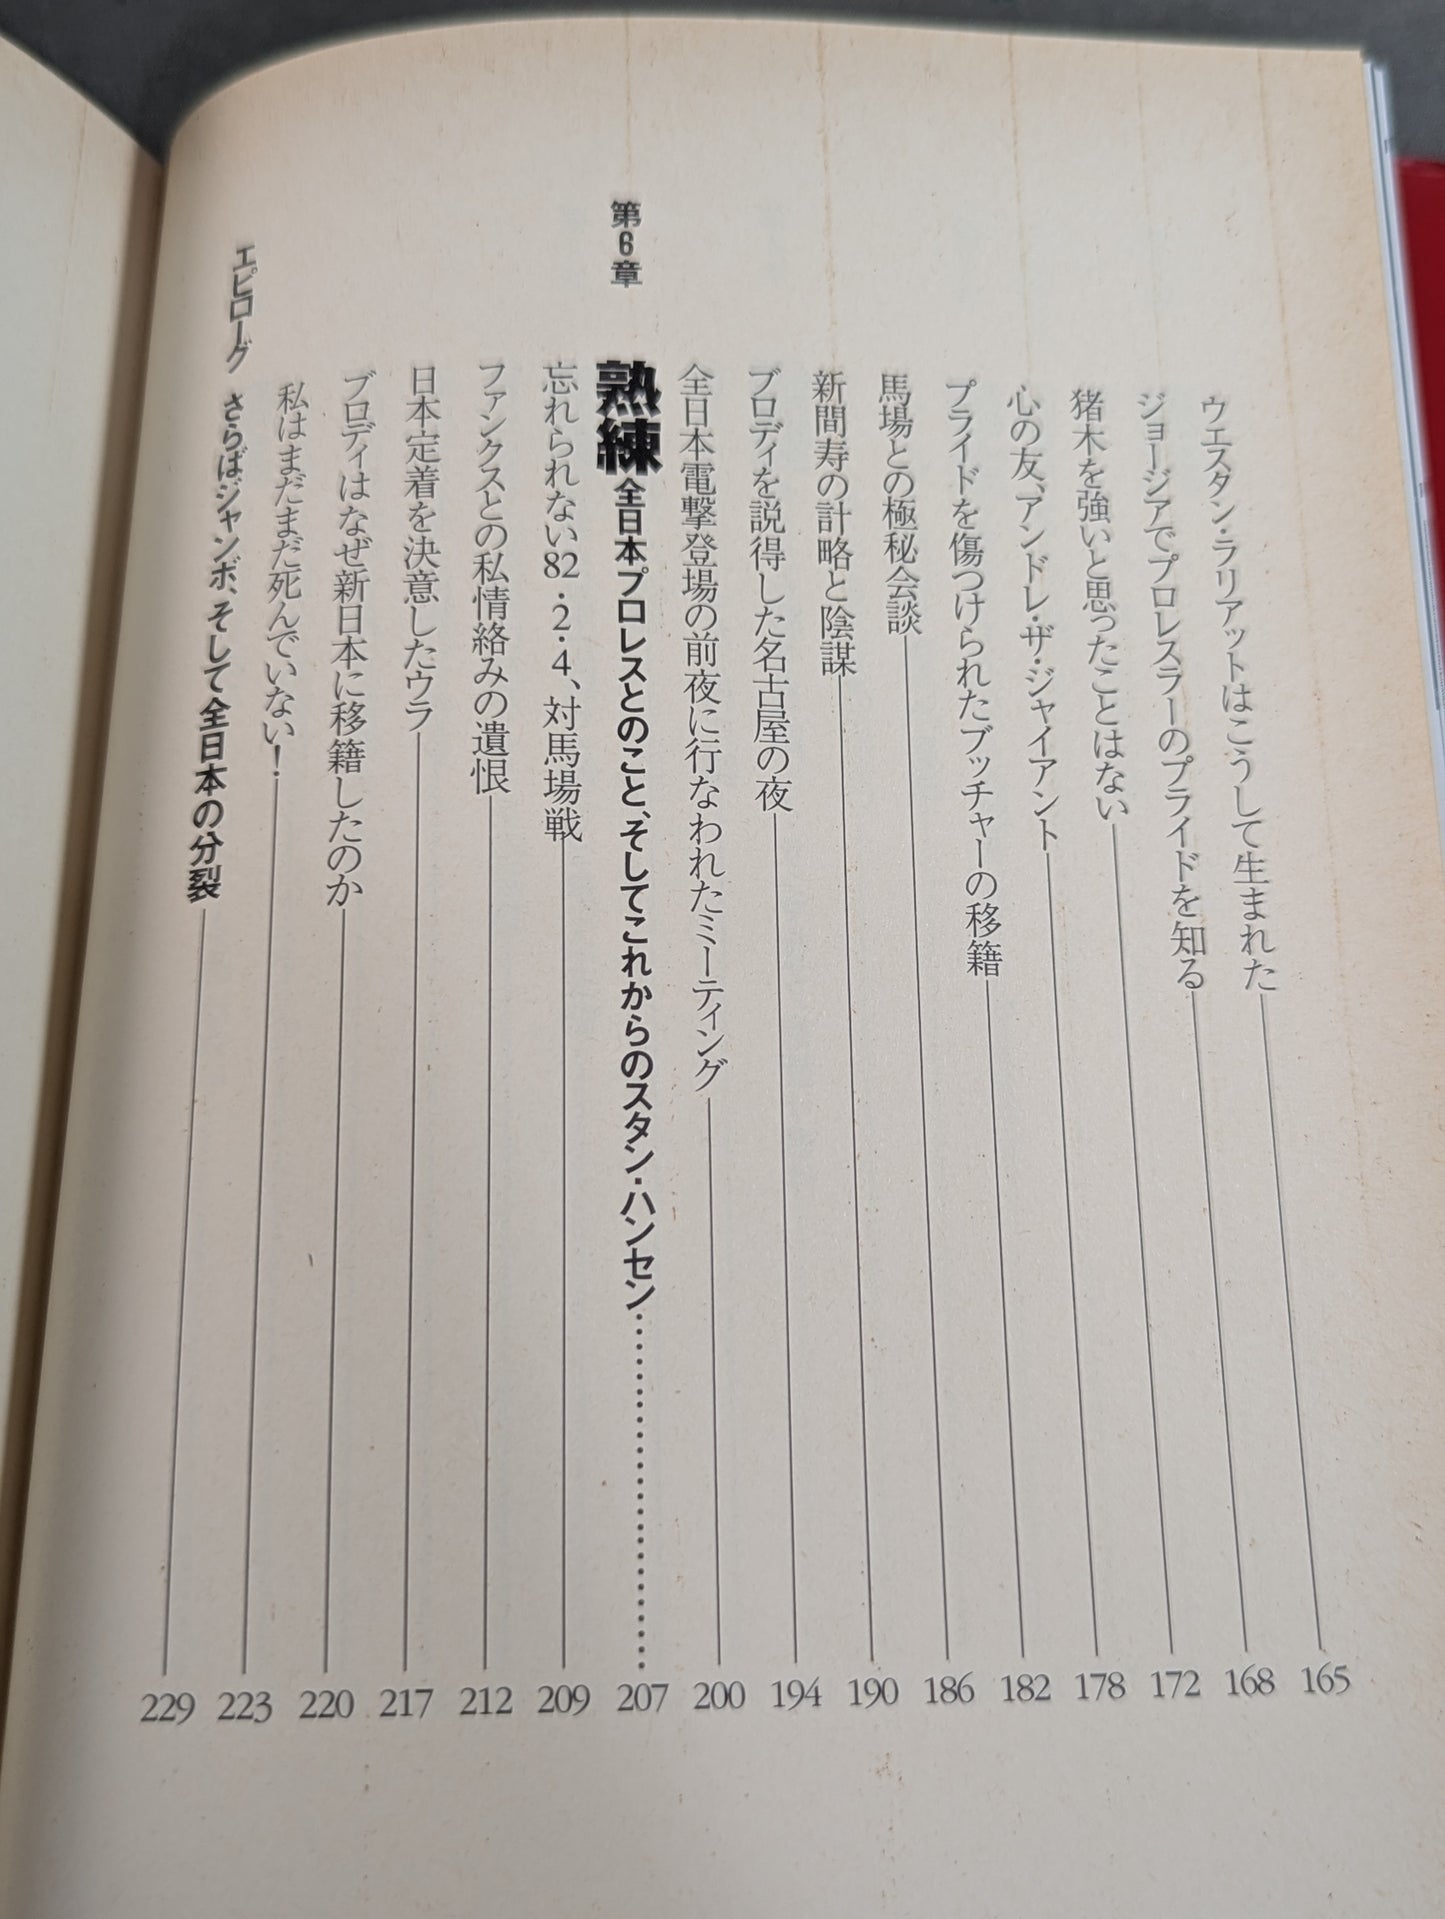 ウエスタン・ラリアットはこうして生まれた 165
ジョージアでプロレスラーのプライドを知る 168
猪木を強いと思ったことはない 172
心の友、アンドレ・ザ・ジャイアント 178
プライドを傷つけられたブッチャーの移籍 182
馬場との極秘会談 186
新間寿の計略と陰謀 190
ブロディを説得した名古屋の夜 194
全日本電撃登場の前夜に行なわれたミーティング 200
第6章 熟練 全日本プロレスとのこと、そしてこれからのスタン・ハンセン…………………… 207
忘れられない82・2・4、対馬場戦 209
ファンクスとの私情絡みの遺恨 212
日本定着を決意したウラ 217
ブロディはなぜ新日本に移籍したのか 220
私はまだまだ死んでいない! 223
エピローグ さらばジャンボ、そして全日本の分裂 229